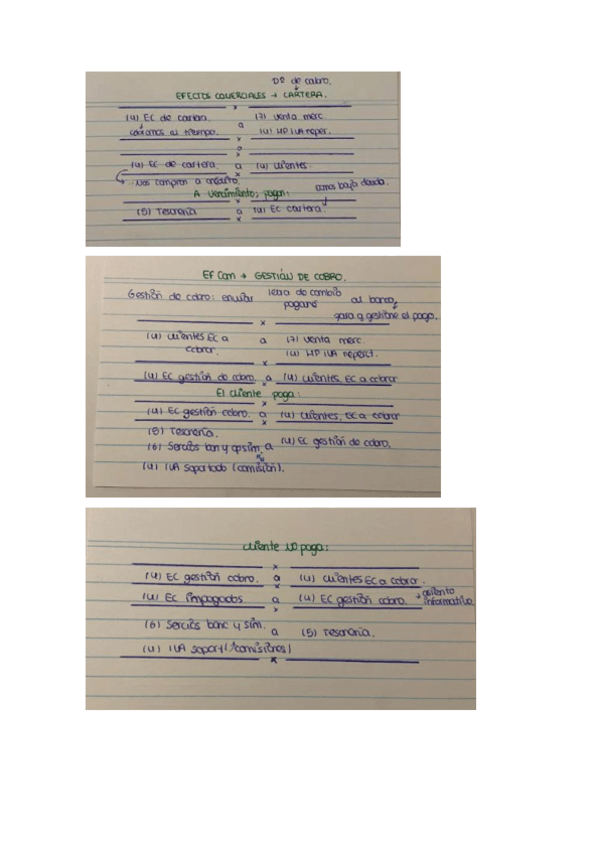 Dº de cobro.
EFECTOS COMERCIALES → CARTERA.
(4) EC de cartera. a (7) venta merc.
cobramos al tiempo. (4) HP IVA reper.
a
(4) EC de cartera. a (4) clientes.
Nos compran a crédito.
A vencimiento; pagan:
(5) Tesorería a (4) EC cartera.
EF Com → GESTIÓN DE COBRO.
Gestión de cobro: enviar letra de cambio al banco,
pagaré para q gestione el pago.
(4) clientes EC a a (7) venta merc.
cobrar. (4) HP IVA reperct.
(4) EC gestión de cobro. a (4) clientes, EC a cobrar
El cliente paga:
(4) EC gestión cobro. a (4) clientes, EC a cobrar
(5) Tesorería.
(6) Servicios ban y sim. a (4) EC gestión de cobro.
(4) IVA soportado (comisión).
cliente NO paga:
(4) EC gestión cobro. a (4) clientes EC a cobrar.
(4) EC impagados a (4) EC gestión cobro. → asiento
informativo.
(6) Servicios banc y sim. a (5) Tesorería.
(4) IVA soport (comisiones)